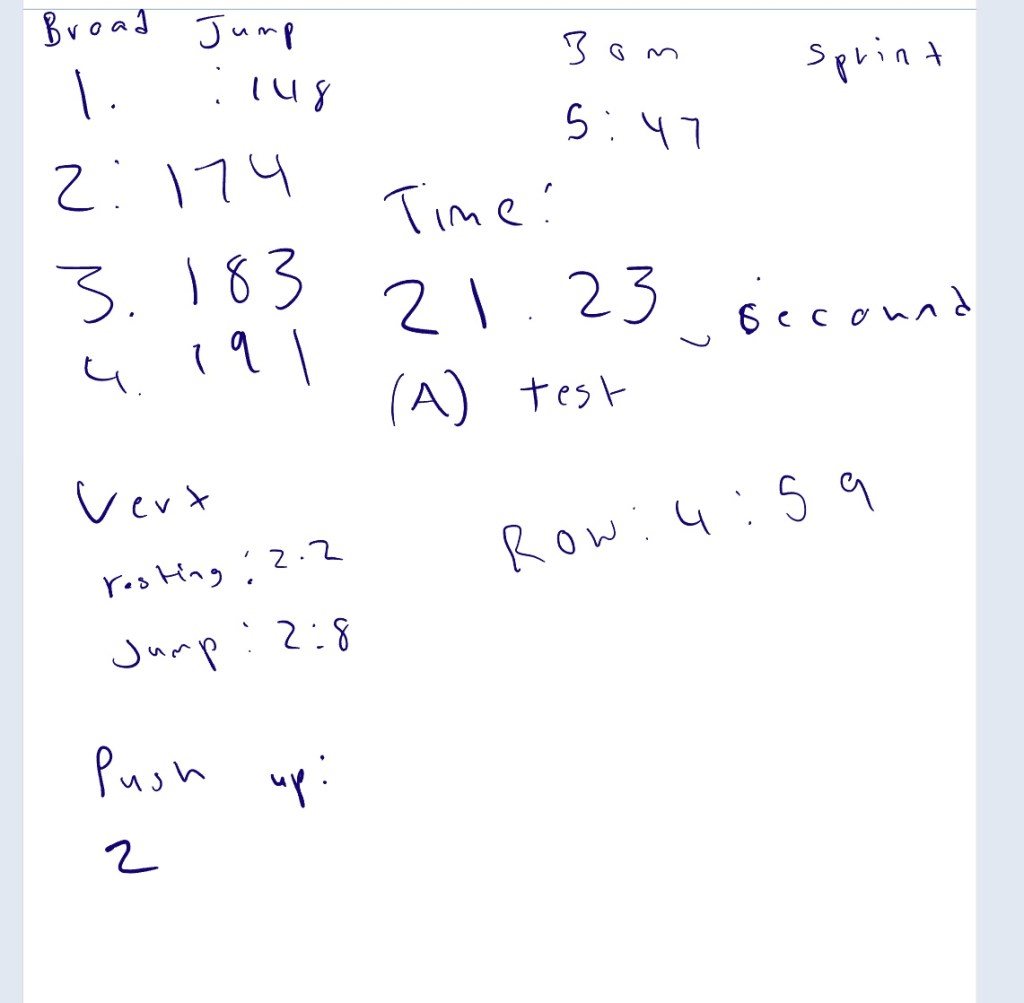 Broad Jump
1. : 148
2: 174
3. 183
4. 191
30m sprint
5:47
Time:
21.23 secound
(A) test
Vert
resting: 2.2
Jump: 2:8
Row: 4:59
Push up:
2